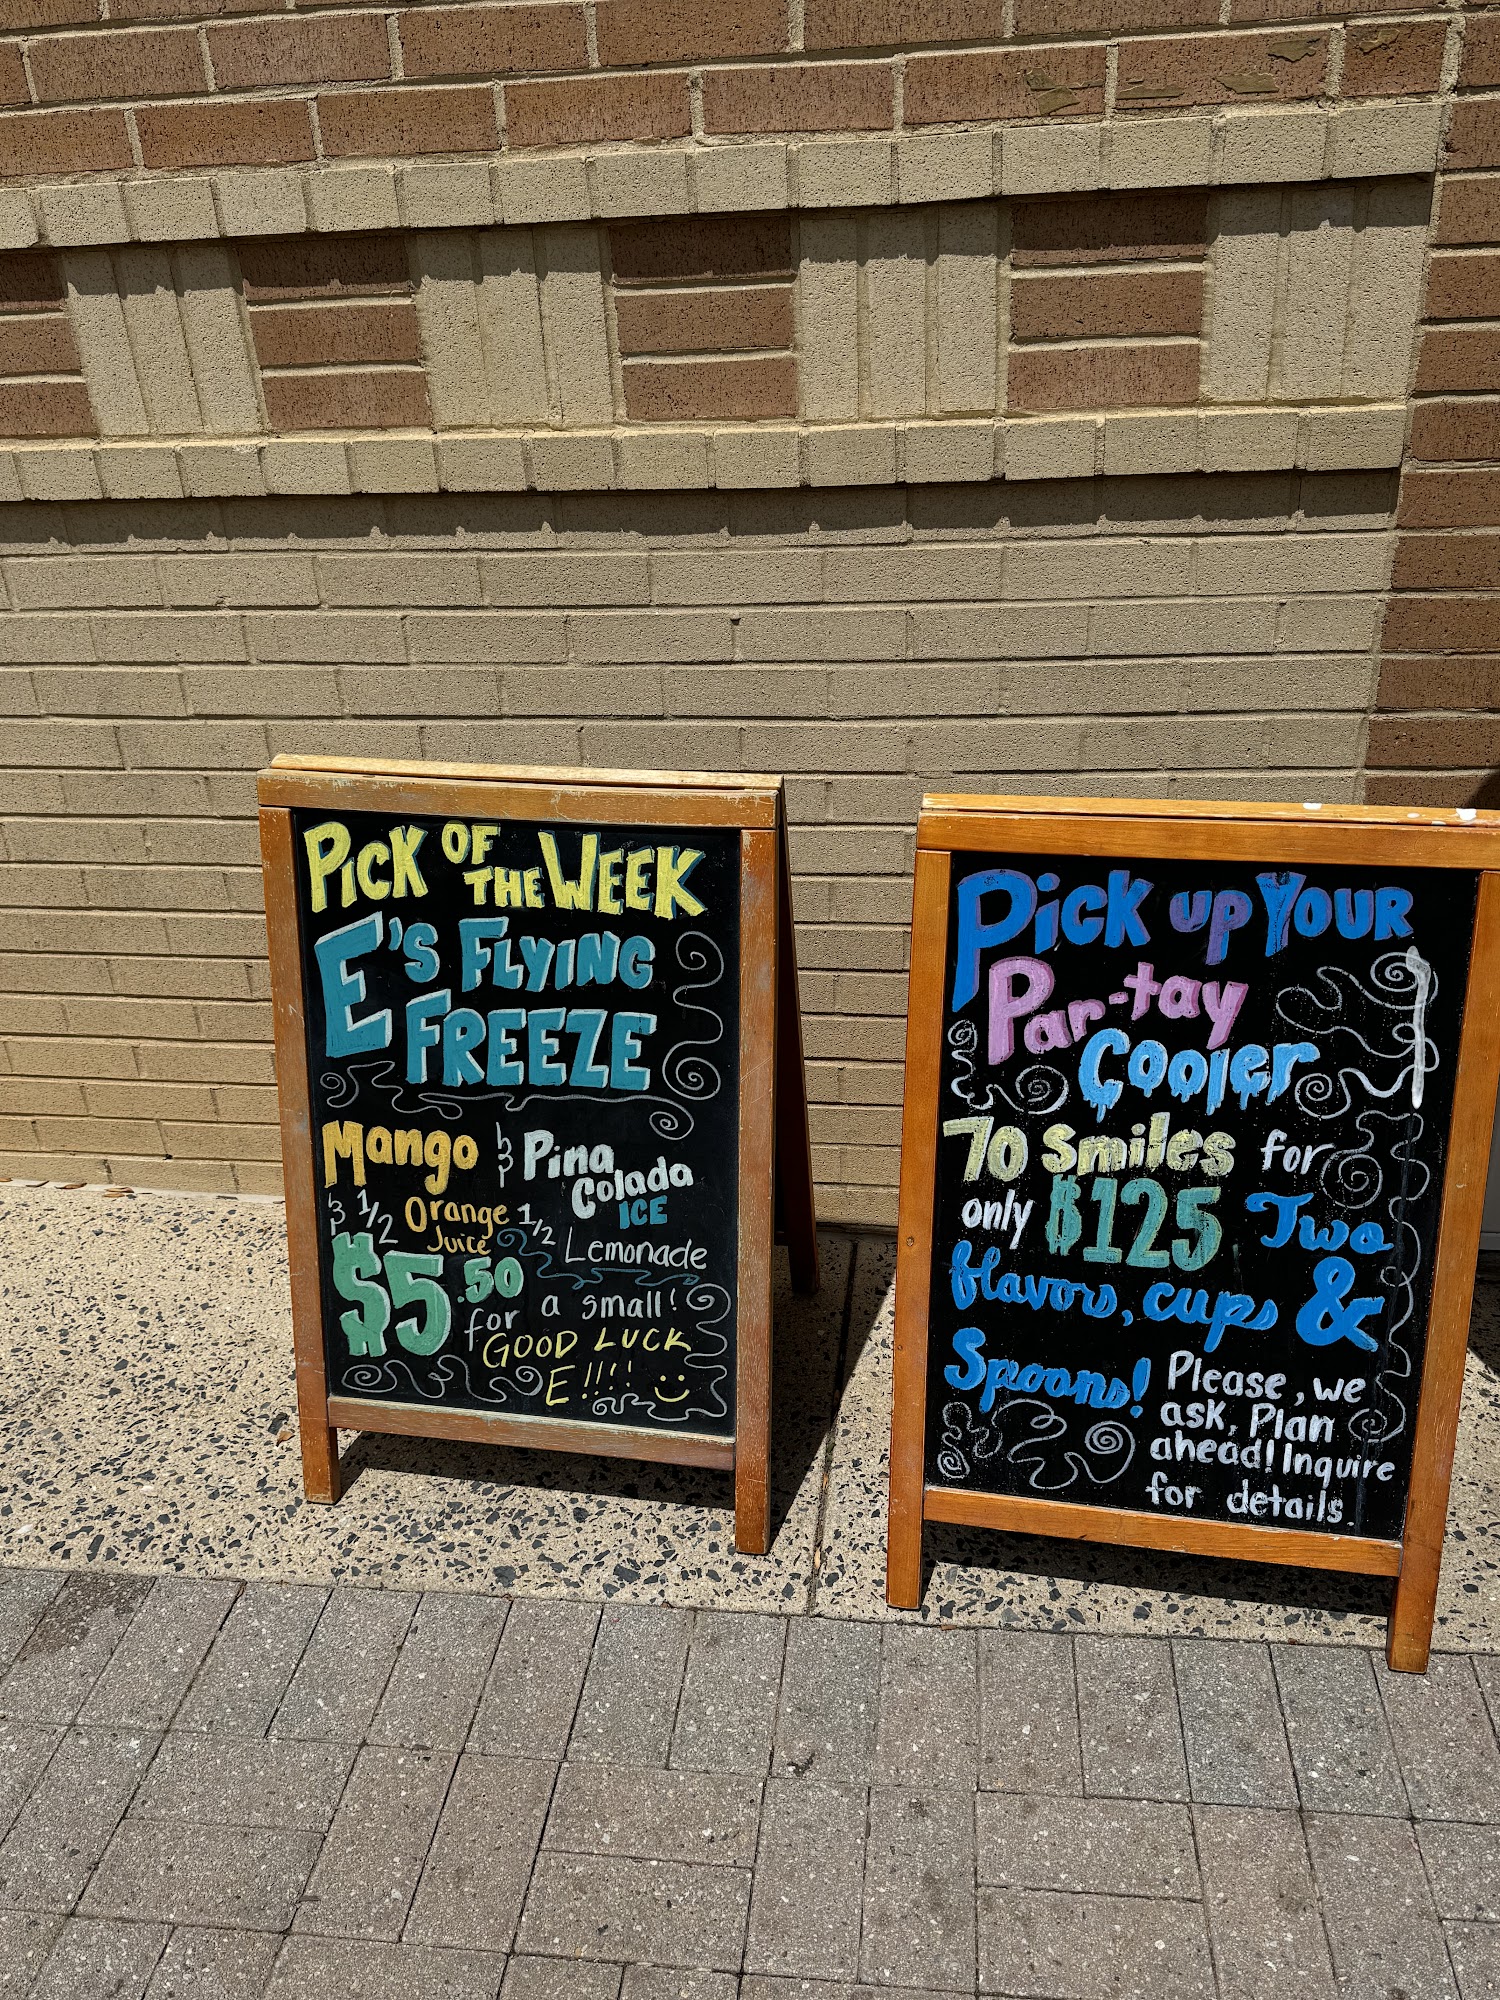 PICK OF THE WEEK
E'S FLYING
FREEZE
Mango
Pina Colada ICE
1/2 Orange Juice
1/2 Lemonade
$5.50
for a small!
GOOD LUCK
E!!!!
Pick up Your
Par-tay
Cooler
70 Smiles for
only $125 Two
flavors, cups &
Spoons!
Please, we
ask, Plan
ahead! Inquire
for details.